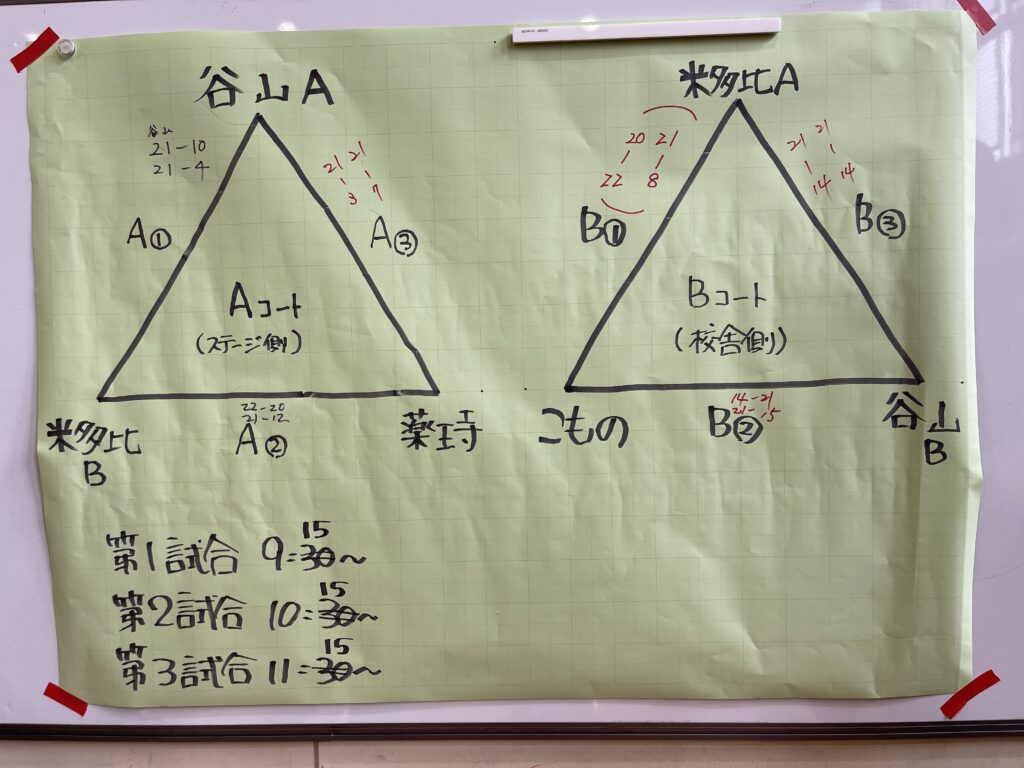 谷山A
谷山
21-10
21-4
21 21
3 7
A①
A③
Aコート
(ステージ側)
22-20
21-12
A②
米多比
B
薬王寺
米多比A
20 21
22 8
21 21
14 14
B①
B③
Bコート
(校舎側)
14-21
21-15
B②
こもの
谷山
B
15
第1試合 9:30~
15
第2試合 10:30~
15
第3試合 11:30~